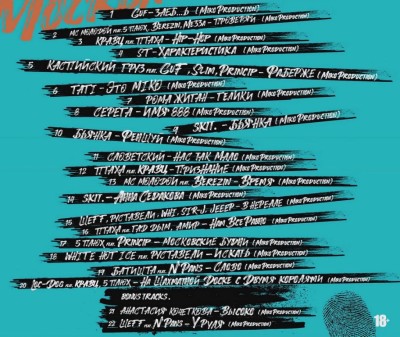 1 GUF - ЗЛЕБ...Ь (MIKO PRODUCTION)
2 МС МОЛОДОЙ FEAT. 5 ПЛЮХ, BEREZIN, МЕЗЗА - ПРОВЕРЯЙ (MIKO PRODUCTION)
3 КРАВЦ FEAT. ПТАХА - HIP-HOP (MIKO PRODUCTION)
4 ST - ХАРАКТЕРИСТИКА (MIKO PRODUCTION)
5 КАСПИЙСКИЙ ГРУЗ FEAT. GUF, SLIM, PRINCIP - ФАБЕРЖЕ (MIKO PRODUCTION)
6 ТАТІ - ЭТО MIKO (MIKO PRODUCTION)
7 РОМА ЖИГАН - ГЕЙКИ (MIKO PRODUCTION)
8 СЕРЕГА - ИМЯ 888 (MIKO PRODUCTION)
9 SKIT. - БЬЯНКА
10 БЬЯНКА - ФЕНШУЙ (MIKO PRODUCTION)
11 СЛОВЕТСКИЙ - НАС ТАК МАЛО (MIKO PRODUCTION)
12 ПТАХА FEAT. КРАВЦ - ПРИЗНАНИЕ (MIKO PRODUCTION)
13 МС МОЛОДОЙ FEAT. BEREZIN - ВРЕМЯ (MIKO PRODUCTION)
14 SKIT. - АННА СЕДОКОВА (MIKO PRODUCTION)
15 ШЕFF, РУСТАВЕЛИ, WHI, SIR-J, JEEEP - В НЕРЕАЛЕ (MIKO PRODUCTION)
16 ПТАХА FEAT. ТАД ДЫМ, АМИР - НАМ ВСЕ РАВНО (MIKO PRODUCTION)
17 5 ПЛЮХ FEAT. PRINCIP - МОСКОВСКИЕ БУДНИ (MIKO PRODUCTION)
18 WHITE HOT ICE FEAT. РУСТАВЕЛИ - ИСКАТЬ (MIKO PRODUCTION)
19 БАТИШТА FEAT. N'PANS - СЛОВО (MIKO PRODUCTION)
20 LOC-DOG FEAT. КРАВЦ, 5 ПЛЮХ - НА ШАХМАТНОЙ ДОСКЕ С ДВУМЯ КОРОЛЯМИ (MIKO PRODUCTION)
BONUS TRACKS.
21 АНАСТАСИЯ КОЧЕТКОВА - ВЫСОКО (MIKO PRODUCTION)
22 ШЕFF FEAT. N'PANS - У РУЛЯ (MIKO PRODUCTION)
18+